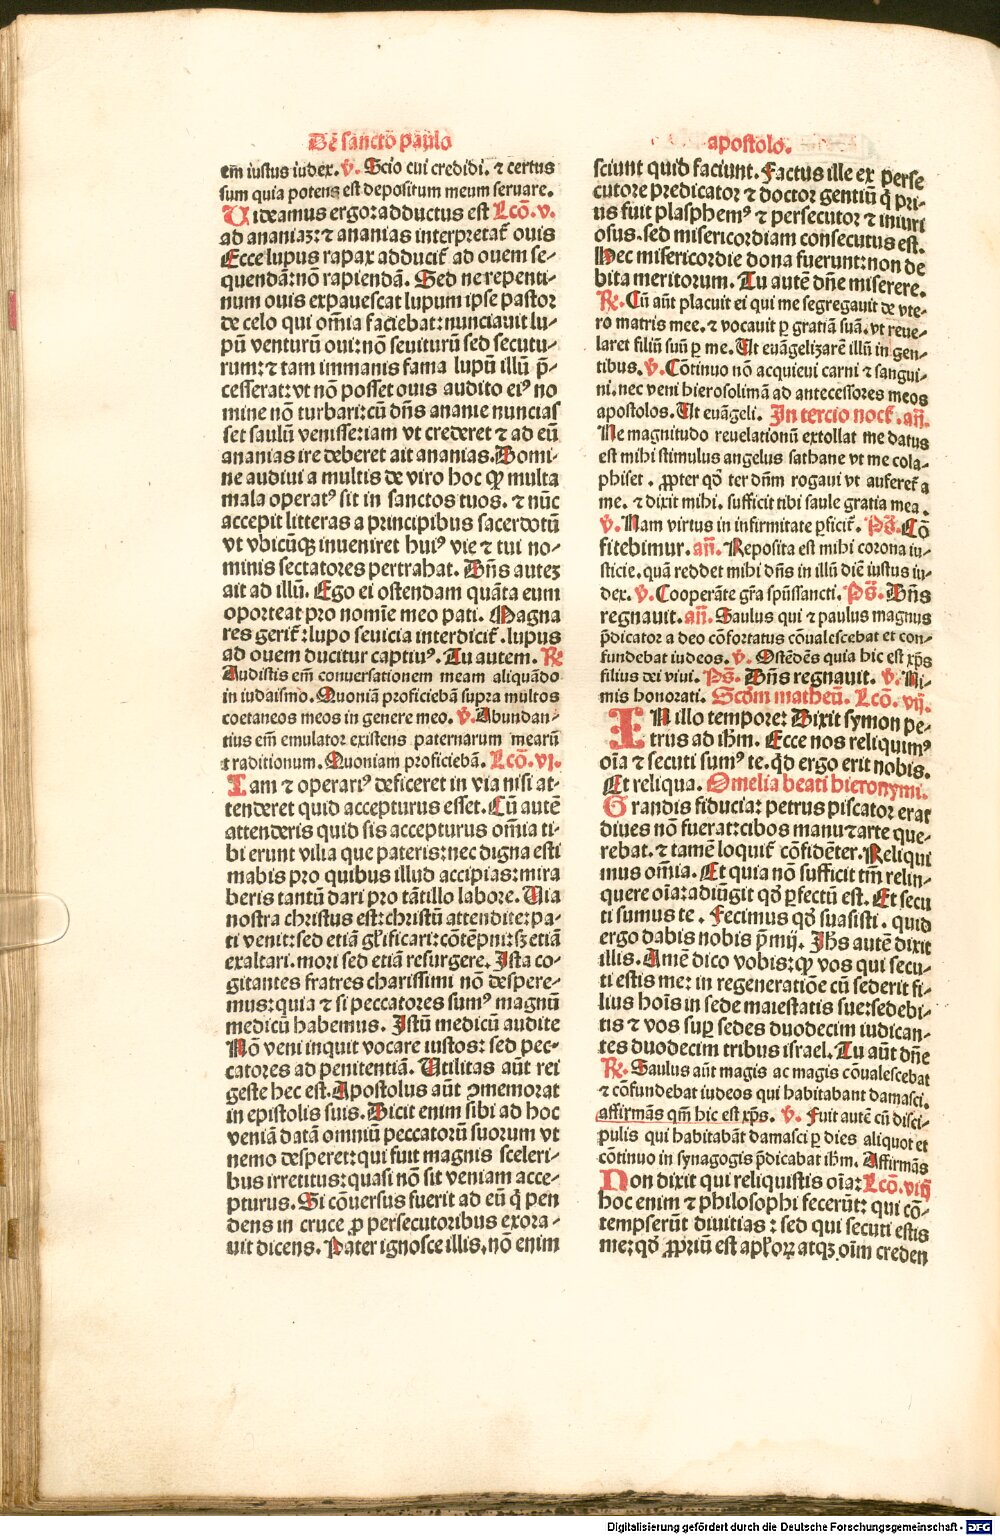 De sancto paulo
em̄ iustus iudex. v. Scio cui credidi. ⁊ certus
sum quia potens est depositum meum seruare.
Uideamus ergo: adductus est Lcō. v.
ad ananiaʒ: ⁊ ananias interpretat̄ ouis
Ecce lupus rapax adducit̄ ad ouem se-
quendā: nō rapiendā. Sed ne repenti-
num ouis expauescat lupum ipse pastor
de celo qui om̄ia faciebat: nunciauit lu-
pū venturū oui: nō seuiturū sed secutu-
rum: ⁊ tam immanis fama lupū illū p̄-
cesserat: vt nō posset ouis audito eiꝰ no
mine nō turbari: cū dn̄s ananie nuncias
set saulū venisse: iam vt crederet ⁊ ad eū
ananias ire deberet ait ananias. Domi-
ne audiui a multis de viro hoc qꝫ multa
mala operatꝰ sit in sanctos tuos. ⁊ nūc
accepit litteras a principibus sacerdotū
vt vbicūqꝫ inueniret huiꝰ vie ⁊ tui no-
minis sectatores pertrahat. Dn̄s auteʒ
ait ad illū. Ego ei ostendam quāta eum
oporteat pro nomīe meo pati. Magna
res gerit̄: lupo seuicia interdicit̄. lupus
ad ouem ducitur captiuꝰ. Tu autem. ℟
Audistis em̄ conuersationem meam aliquādo
in iudaismo. Quoniā proficiebā supra multos
coetaneos meos in genere meo. v. Abundan-
tius em̄ emulator existens paternarum mearū
traditionum. Quoniam proficiebā. Lcō. vj.
Iam ⁊ operariꝰ deficeret in via nisi at-
tenderet quid accepturus esset. Cū autē
attenderis quid sis accepturus om̄ia ti-
bi erunt vilia que pateris: nec digna esti
mabis pro quibus illud accipias: mira
beris tantū dari pro tātillo labore. Uia
nostra christus est: christū attendite: pa-
ti venit: sed etiā gl̄ificari: cōtēpni: sꝫ etiā
exaltari. mori sed etiā resurgere. Ista co-
gitantes fratres charissimi nō despere-
mus: quia ⁊ si peccatores sumꝰ magnū
medicū habemus. Istū medicū audite
Nō veni inquit vocare iustos: sed pec-
catores ad penitentiā. Utilitas aūt rei
geste hec est. Apostolus aūt ꝯmemorat
in epistolis suis. Dicit enim sibi ad hoc
veniā datā omniū peccatorū suorum vt
nemo desperet: qui fuit magnis sceleri-
bus irretitus: quasi nō sit veniam acce-
pturus. Si cōuersus fuerit ad eū q̄ pen
dens in cruce ꝓ persecutoribus exora-
uit dicens. Pater ignosce illis, nō enim
apostolo.
sciunt quid faciunt. Factus ille ex perse
cutore predicator ⁊ doctor gentiū q̄ pri-
us fuit plasphemꝰ ⁊ persecutor ⁊ iniuri
osus. sed misericordiam consecutus est.
Nec misericordie dona fuerunt: non de
bita meritorum. Tu autē dn̄e miserere.
℟. Cū aūt placuit ei qui me segregauit de vte-
ro matris mee. ⁊ vocauit ꝑ gratiā suā. vt reue-
laret filiū suū ꝑ me. Ut euāgelizarē illū in gen-
tibus. v. Cōtinuo nō acquieui carni ⁊ sangui-
ni. nec veni hierosolimā ad antecessores meos
apostolos. Ut euāgeli. In tercio noct̄. an̄.
Ne magnitudo reuelationū extollat me datus
est mihi stimulus angelus sathane vt me cola-
phiset. ꝓpter qd̄ ter dn̄m rogaui vt auferet̄ a
me. ⁊ dixit mihi. sufficit tibi saule gratia mea.
v. Nam virtus in infirmitate ꝑficit̄. Ps̄. Cō
fitebimur. an̄. Reposita est mihi corona iu-
sticie. quā reddet mihi dn̄s in illū diē iustus iu-
dex. v. Cooperāte gr̄a spūssancti. Ps̄. Dn̄s
regnauit. an̄. Saulus qui ⁊ paulus magnus
p̄dicator a deo cōfortatus cōualescebat et con-
fundebat iudeos. v. Ostēdēs quia hic est xp̄s
filius dei viui. Ps̄. Dn̄s regnauit. v. Ni-
mis honorati. Scd̄m matheū. Lcō. vij.
IN illo tempore: Dixit symon pe-
trus ad ih̄m. Ecce nos reliquimꝰ
oīa ⁊ secuti sumꝰ te. qd̄ ergo erit nobis.
Et reliqua. Omelia beati hieronymi.
Grandis fiducia: petrus piscator erat
diues nō fuerat: cibos manu ⁊ arte que-
rebat. ⁊ tamē loquit̄ cōfidēter. Reliqui
mus om̄ia. Et quia nō sufficit tm̄ relin-
quere oīa: adiūgit qd̄ ꝑfectū est. Et secu
ti sumus te. Fecimus qd̄ suasisti. quid
ergo dabis nobis p̄mij. Ih̄s autē dixit
illis. Amē dico vobis: qꝫ vos qui secu-
ti estis me: in regeneratiōe cū sederit fi-
lius hoīs in sede maiestatis sue: sedebi-
tis ⁊ vos suꝑ sedes duodecim iudican-
tes duodecim tribus israel. Tu aūt dn̄e
℟. Saulus aūt magis ac magis cōualescebat
⁊ cōfundebat iudeos qui habitabant damasci.
affirmās qm̄ hic est xp̄s. v. Fuit autē cū disci-
pulis qui habitabāt damasci ꝑ dies aliquot et
cōtinuo in synagogis p̄dicabat ih̄m. Affirmās
Non dixit qui reliquistis oīa: Lcō. viij
hoc enim ⁊ philosophi fecerūt: qui cō-
tempserūt diuitias: sed qui secuti estis
me: qd̄ ꝓpriū est apl̄oꝝ atqꝫ oīm creden
Digitalisierung gefördert durch die Deutsche Forschungsgemeinschaft - DFG